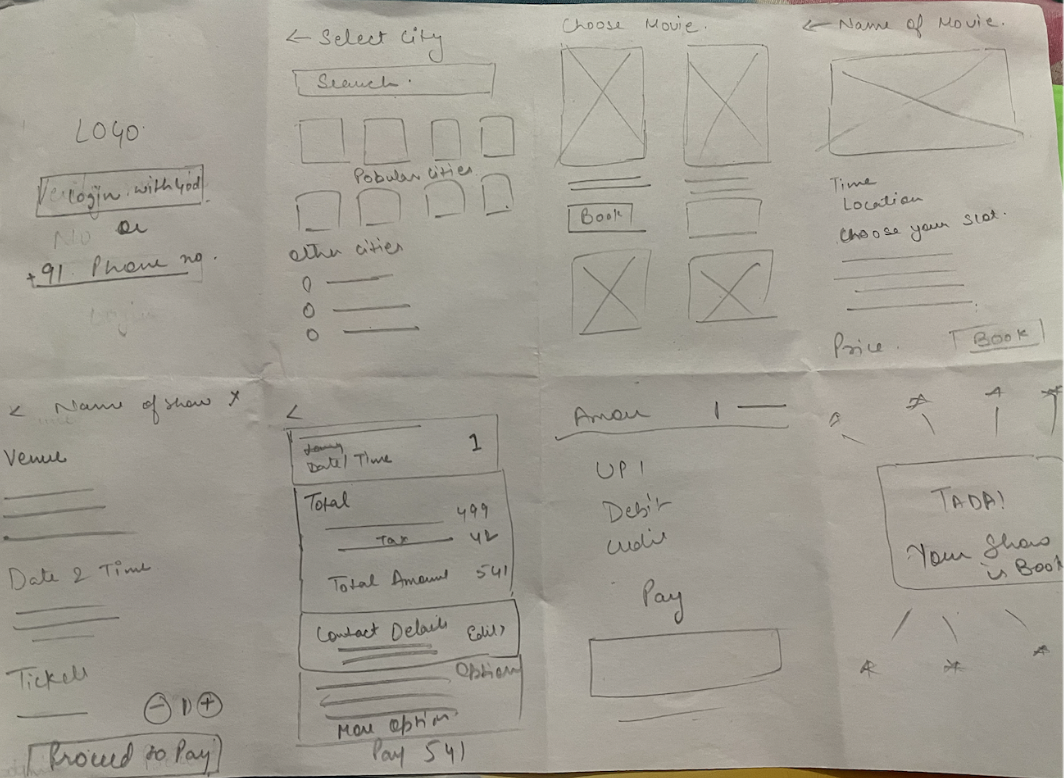 LOGO
Login with
or
+91 Phone no.
← Select City
Search
Popular cities
other cities
Choose Movie.
Book
← Name of Movie.
Time
Location
Choose your slot.
Price.
Book
< Name of show x
Venue
Date & Time
Tickets
- 1 +
Proceed to Pay
<
Date/ Time 1
Total
499
Tax 42
Total Amount 541
Contact Details Edit>
Option
More option
Pay 541
Amou
UPI
Debit
Credit
Pay
TADA!
Your Show
is Book